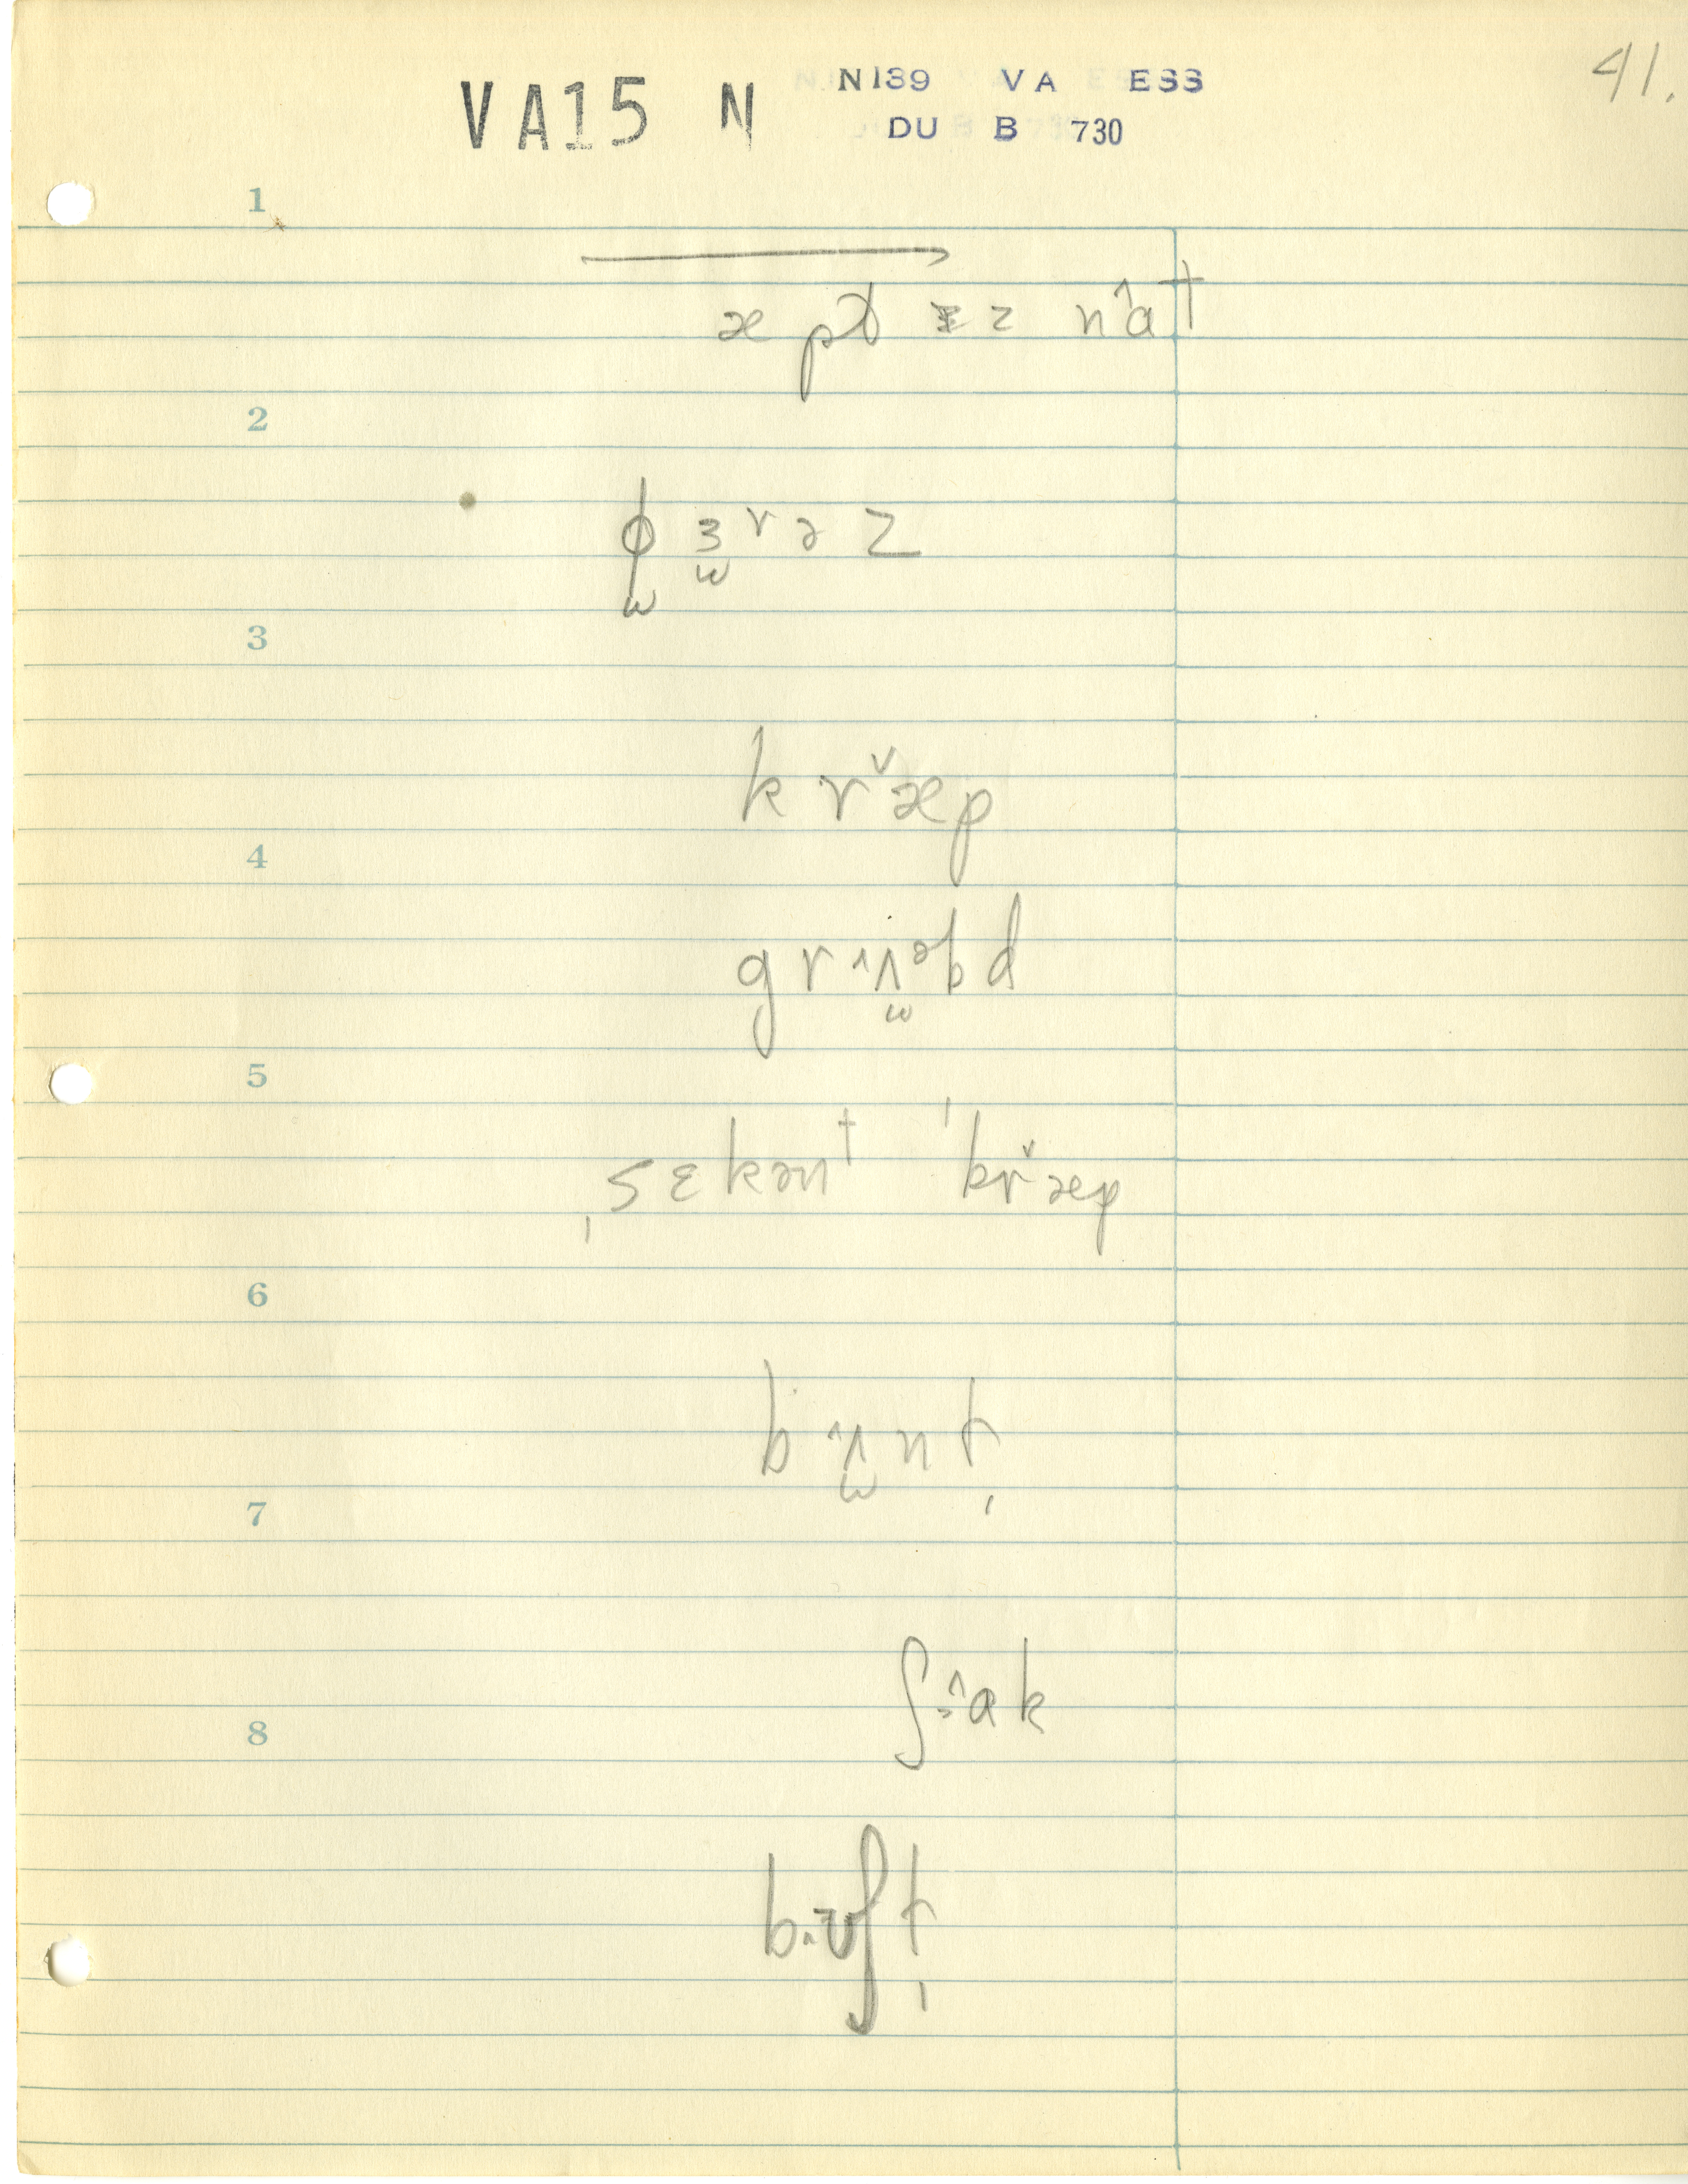 41.
VA15 N N139 VA ESS
DU B 730
1
æpt z nât
2
ɸ̫ ɜ̫ r ə z
3
k r æ̌ p
4
g r ʌ̫̂ ᵊ b d
5
ˌsɛkənt ˈkr̆æp
6
b ʌ̫̂ n t̩
7
ʃ âk
8
b ʊʃ t̩